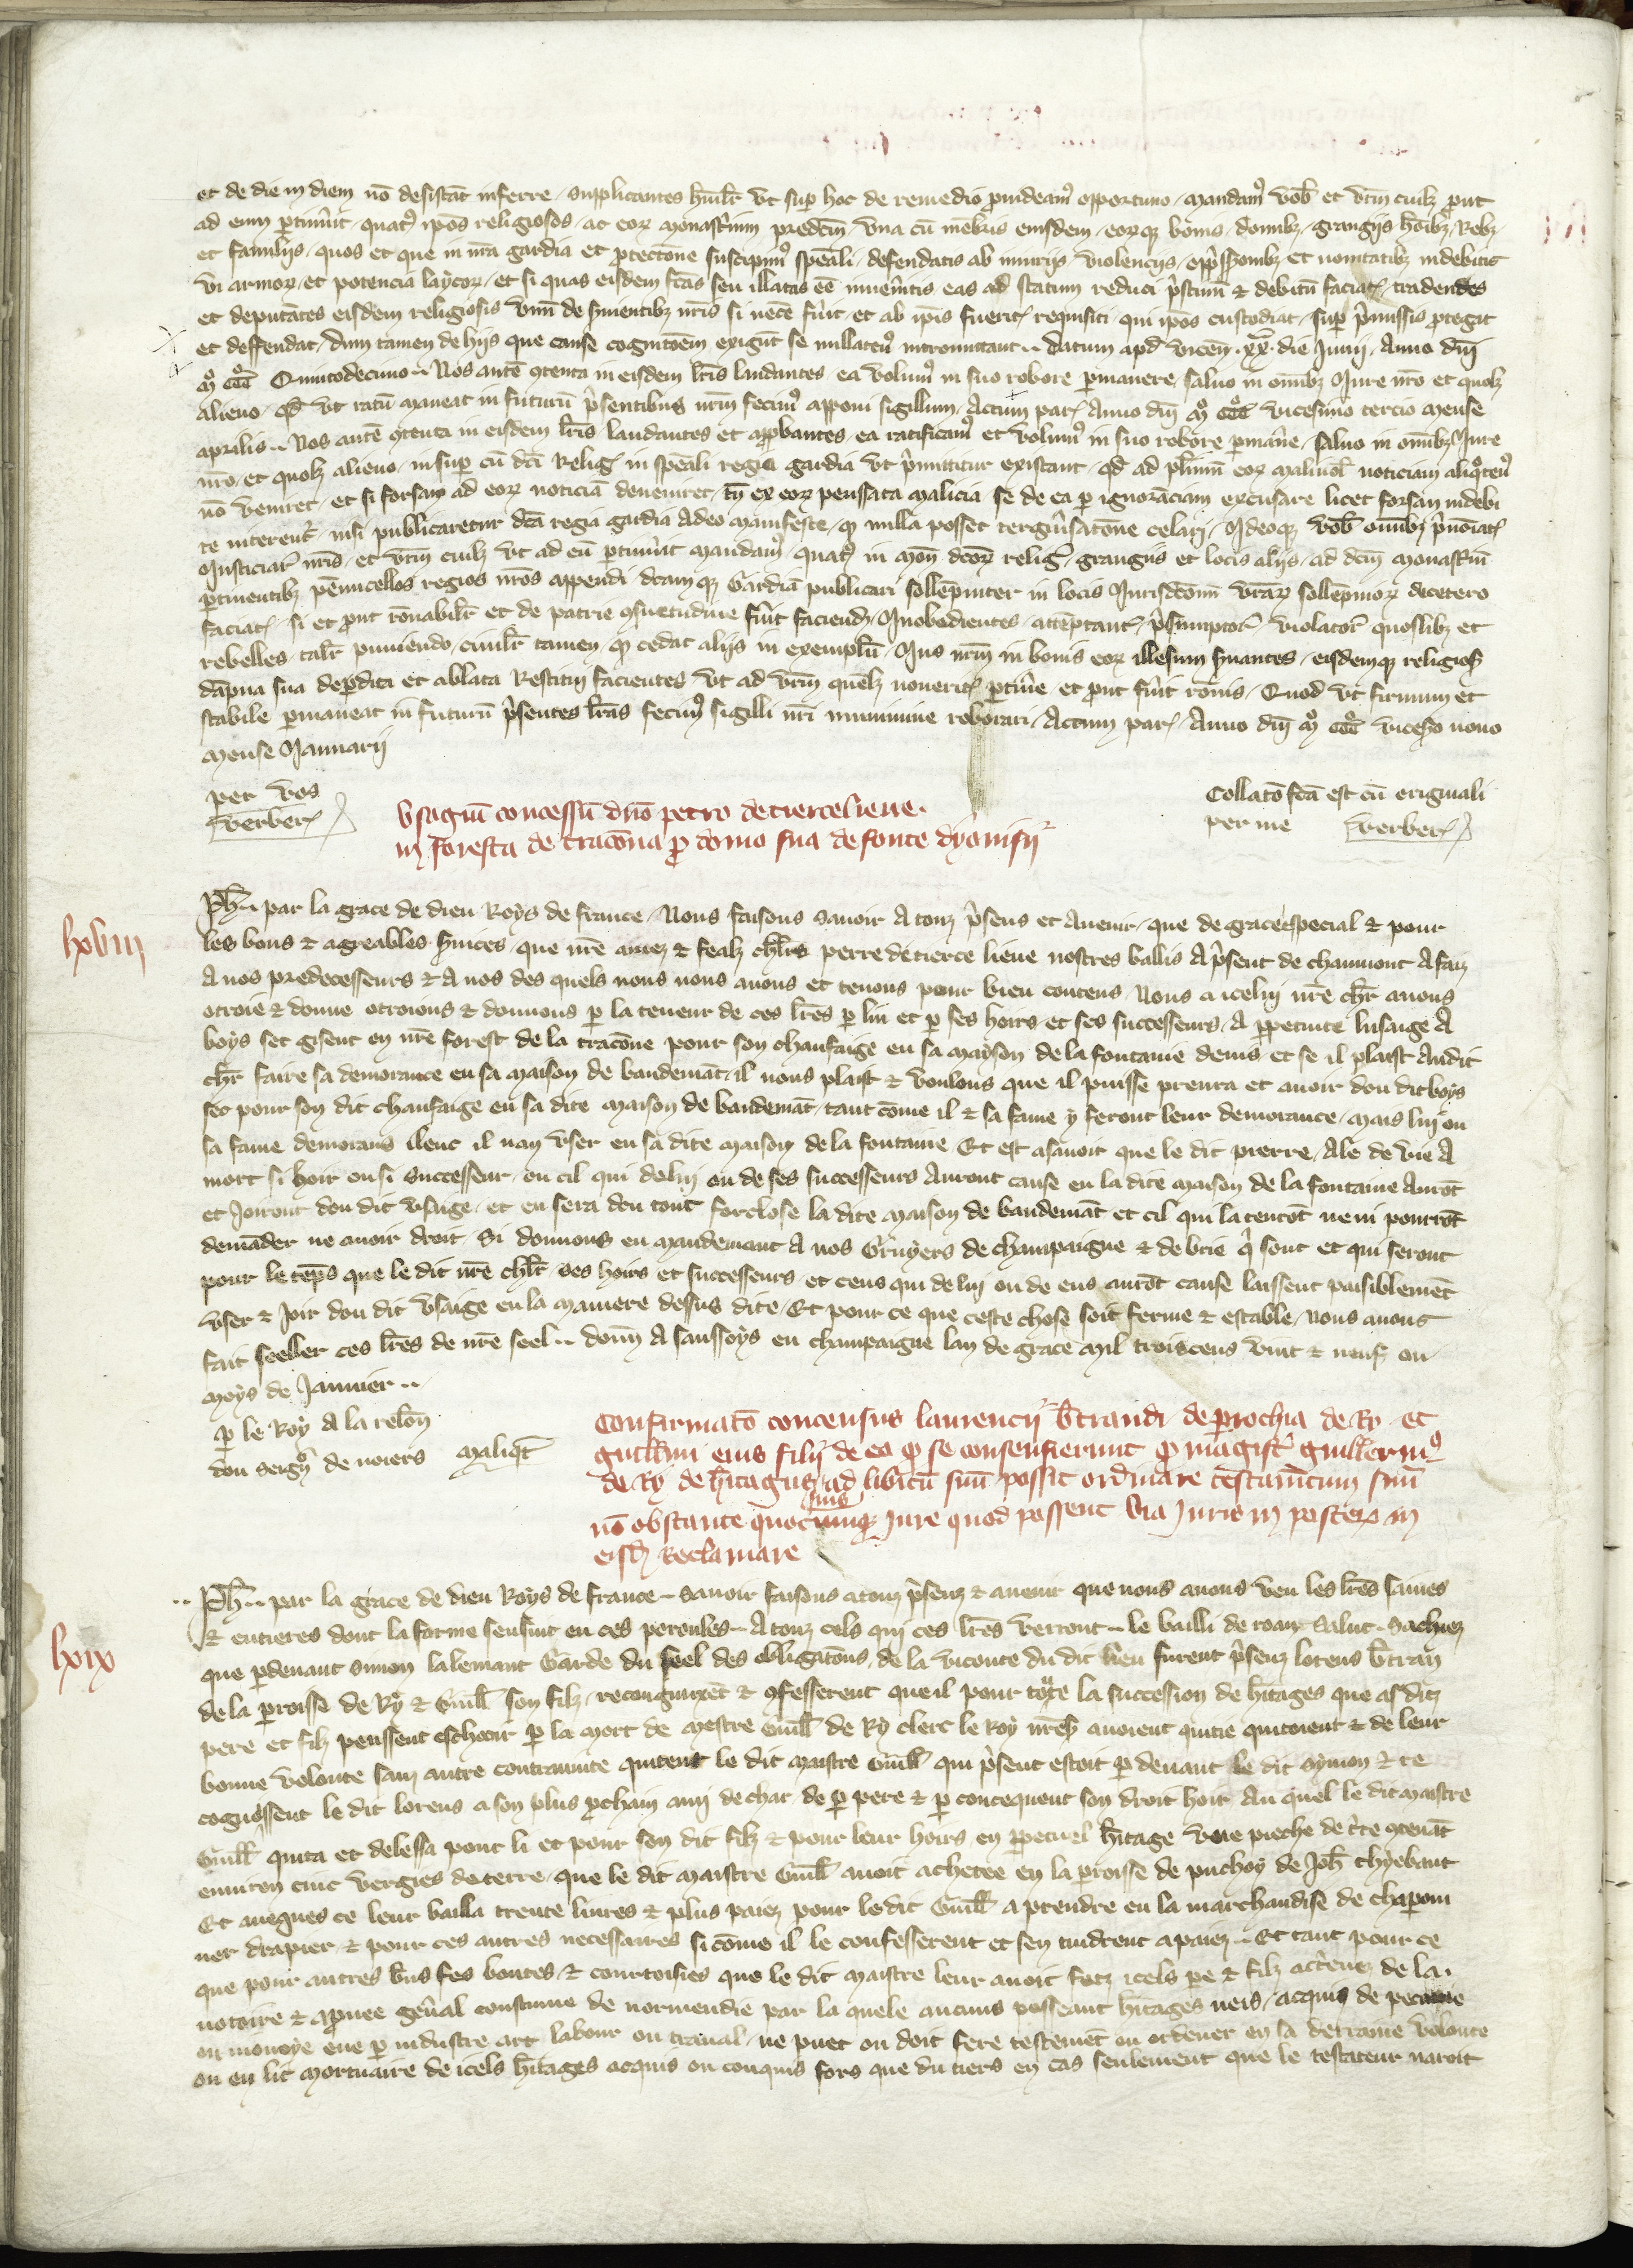 et de die in diem nō desistāt inferre / supplicantes hūilr̄ vt suꝑ hoc de remedio ꝓuideam᷒ oportuno / mandam᷒ vob̄ et vr̄m cuilꝫ ꝓut
ad eum ꝑtinūit / quat᷒ ip̄os religiosos / ac eoꝝ monast̄ium predcm̄ / vna cū mēbris eiusdem / eoꝝqꝫ bonis / domibꝫ / grangijs hōibꝫ / Rebꝫ
et familijs / quos et que in nr̄a gardia et ꝓtectōne suscipim᷒ spēali / defendatis ab iniurijs violencijs / opp̄ssionibꝫ et nouitatibꝫ indebitis
vi armoꝝ / et potencia laycoꝝ / et si quas eisdem fc̄as seu illatas eē inuen̄itis eas ad statum reduci p̄stinū ⁊ debitū faciat / tradendes
et deputātes eisdem religiosis vnū de s̄uientibꝫ nr̄is si necē fūit / et ab ip̄is fuerit requisiti / qui ip̄os custodiat / suꝑ p̄missis ꝓtegit
et deffendat / dum tamen de hijs que cause cognitōem exigūt se nullaten᷒ intromittant ‥ Datum apd̄ vicēn ·xx· die Junij / Anno dn̄i
mº cccº Quintodecimo ‥ Nos autē ꝯtenta in eisdem lr̄is laudantes / ea volum᷒ in suo robore ꝑmanere / saluo in om̄ibꝫ Jure nr̄o et quolꝫ
alieno / qd̄ vt ratū maneat in futurū p̄sentibus nr̄m fecim᷒ apponi sigillum / Actum par̄ Anno dn̄i mº cccº vicesimo tercio mense
aprilis ‥ Nos autē ꝯtenta in eisdem lr̄is laudantes et app̄bantes / ea ratificam᷒ et volum᷒ in suo robore ꝑman̄e / saluo in om̄ibꝫ Jure
nr̄o / et quolꝫ alieno / insuꝑ cū dc̄i Reliḡ in spēali regia gardia vt p̄mittitur existant / qd̄ ad pl̄imū eoꝝ maliuol̄ noticiam aliqᵒten᷒
nō veniret / et si forsan ad eoꝝ noticiā deueniret / tn̄ ex eoꝝ pensata malicia se de ea ꝑ ignorāciam excusare licet forsan indebi
te niterent᷒ / nisi publicaretur dc̄a regia gardia Adeo manifeste / qꝫ nulla posset tergiūsatōne celari / Ideoqꝫ vob̄ om̄ibꝫ p̄nōiat
Justiciar̄ nr̄is / et vr̄m cuilꝫ vt ad eū ꝑtinūit mandam᷒ / quat᷒ in mon̄ dcoꝝ reliḡ / grangiis et locis alijs / ad dcm̄ monast̄iū
ꝑtinentibꝫ pēnucellos regios nr̄os appendi / dcamqꝫ Gardiā publicari sollēpniter in locis Jurisdc̄onū vr̄aꝝ sollēpnioꝝ decetero
faciat / si et ꝓut rōnabilr̄ et de patrie ꝯsuetudine fūit faciend / Inobedientes / attēptant / p̄sumptor̄ / violator̄ quoslibꝫ et
rebelles / talr̄ puniendo / ciuilr̄ tamen / qꝫ cedat alijs in exemplū / Jus nr̄m in bonis eoꝝ illesum s̄uantes / eisdemqꝫ religiosꝭ
dāpna sua deꝑdita et ablata Restitui facientes vt ad vr̄m quēlꝫ nouerit ꝑtin̄e et ꝓut fūit rōnis / Quod vt firmum et
stabile ꝑmaneat in futurū p̄sentes lr̄as fecim᷒ sigilli nr̄i munimine roborari / Actum par̄ / Anno dn̄i mº cccº viceso nono
mense Januarij
per vos
verber
Collatō fc̄a est cū originali
per me verber
vsagiū concessū dn̄o petro de tierceliene·
in foresta de tracōna ꝓ domo sua de fonte dyonisij
lxviii
Ph̄ ‥ par la grace de dieu Roys de france / Nous faisons sauoir A touz p̄sens et Auenir / que de grace especial ⁊ pour
les bons ⁊ agreables s̄uices / que nr̄e amez ⁊ fealz chlr̄s perre de tierce lieue nostres ballis A p̄sent de chaumont A faiz
A nos predecesseurs ⁊ A nos des quels nous nous auons et tenons pour bien contens / Nous a icelui nr̄e chr̄ auons
otroie ⁊ donne otroions ⁊ donnons ꝑ la teneur de ces lr̄es ꝑ lui et ꝑ ses hoirs / et ses successeurs / A ꝑpetuite lusaige A
boys sec gisent en nr̄e forest de la tracōne pour son chaufaige en sa mayson de la fontaine denis / et se il plaist Audit
chr̄ faire sa demorance en sa maison de baudemāt / il nous plaist ⁊ voulons que il puisse prenra et auoir dou dit boys
sec pour son dit chaufaige en sa dite maison de baudemāt / tant cōme il ⁊ sa fame y feront leur demorance / mais lui ou
sa fame demorans ilenc il nan vser en sa dite maison de la fontaine / Et est asauoir que le dit pierre / Ale de vie A
mort si hoir ou si successeur / ou cil qui de lui ou de ses successeurs Auront cause en la dite maison de la fontaine Aurōt
et Joiront dou dit vsaige / et en sera dou tout forclose la dite maison de baudemāt et cil qui la tenrōt ne ni pourrōt
demāder ne auoir droit / Si donnons en mandemant A nos Gruyers de champaigne ⁊ de brie q̄ sont et qui seront
pour le tēps que le dit nr̄e chlr̄ / ses hoirs et successeurs / et ceus qui de lui ou de eus aurōt cause laissent paisiblemēt
vser ⁊ Joir dou dit vsaige en la maniere dessus dite / Et pour ce que ceste chose soit ferme ⁊ estable / Nous auons
fait seeller ces lr̄es de nr̄e seel ‥ donn̄ A saussoys en champaigne lan de grace mil troiscens vint ⁊ neuf ou
moys de Januier ‥
ꝑ le Roy A la relōn
dou seigr̄ de noiers maliqt̄
Confirmatō concensus laurencij b̄trandi de ꝑrochia de Ry / et
guill̄mi eius filij de eo qꝫ se consenserunt qꝫ magist᷒ guillerm᷒
de Ry de h̄itagijs ad libitū suū possit ordinare testam̄tum suū
suis
nō obstante quocumqꝫ Jure quod possent via Juris in posteꝝ in
eisd Reclamare
lxix
‥ Ph̄ ‥ par la grace de dieu Roys de france ‥ sauoir faisons a touz p̄senz ⁊ auenir que nous auons veu les lr̄es saines
⁊ entieres dont la forme sensuit en ces paroules ‥ A touz cels qui ces lr̄es verront ‥ le bailli de roan Salut · Sachiez
que ꝑdeuant simon lalemant Garde du seel des obligatōns / de la viconte du dit lieu furent p̄senz lorens b̄tran
de la ꝑroisse de Ry ⁊ Guill̄ son filz / recongnurēt ⁊ ꝯfesserent que il pour tote la succession de h̄itages que as diz
pere et filz peussent escheoir ꝑ la mort de mestre Guill̄ de Ry clerc le Roy nr̄eſ auoient quitie quitoient ⁊ de leur
bonne volonte sanz autre contrainte quitent le dit maistre Guill̄ qui p̄sent estoit ꝑ deuant le dit symon ⁊ re
cognossent le dit lorens a son plus ꝓchain ami de char de ꝑ pere ⁊ ꝑ concequent son droit hoir Au quel le dit maistre
Guill̄ quita et delessa pour li et pour son dit filz ⁊ pour leur hoirs en ꝑpetuel h̄itage vne pieche de t̄re ꝯtenāt
enuiron cinc vergies de terre / que le dit maistre Guill̄ auoit achetee en la ꝑroisse de puchoy de Joh̄ Thyebaut
Et auegues ce leur bailla trente liures ⁊ plus paiez pour le dit Guill̄ a prendre en la marchandise de chaponi
ner drapier ⁊ pour ces autres necessaires si cōme il le confesserent et sen tindrent apaiez ‥ Et tant pour ce
que pour autres b̄ns fes bontes ⁊ courtoisies que le dit maistre leur auoit fetz icels ꝑe ⁊ filz acrēnez de la
notoire ⁊ aꝓuee gen̄al coustume de normendie par la quele aucuns posseant h̄itages neis / acquis de pecune
ou monoye eue ꝑ industre art labour ou traual / ne puet ou doit fere testemēt ou ordener en sa derraine volonte
ou en lit mortuaire de icels h̄itages acquis ou conquis fors que du tiers en cas seulement que le testateur naroit